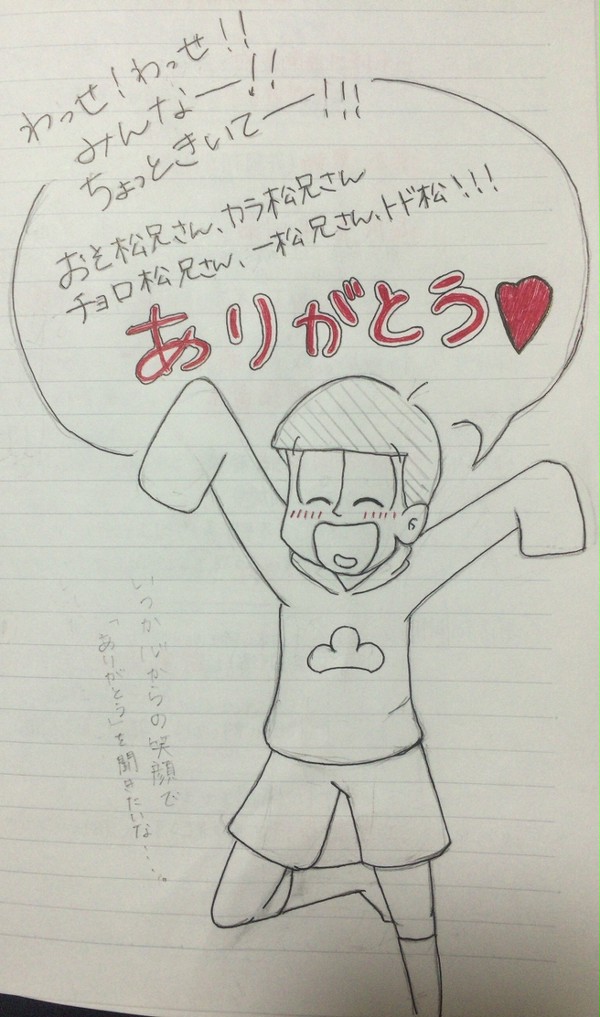 わっせ!わっせ!!
みんなー!!
ちょっときいてー!!!
おそ松兄さん、カラ松兄さん
チョロ松兄さん、一松兄さん、トド松!!!
ありがとう♥
いつか心からの笑顔で
「ありがとう」を聞きたいな....。